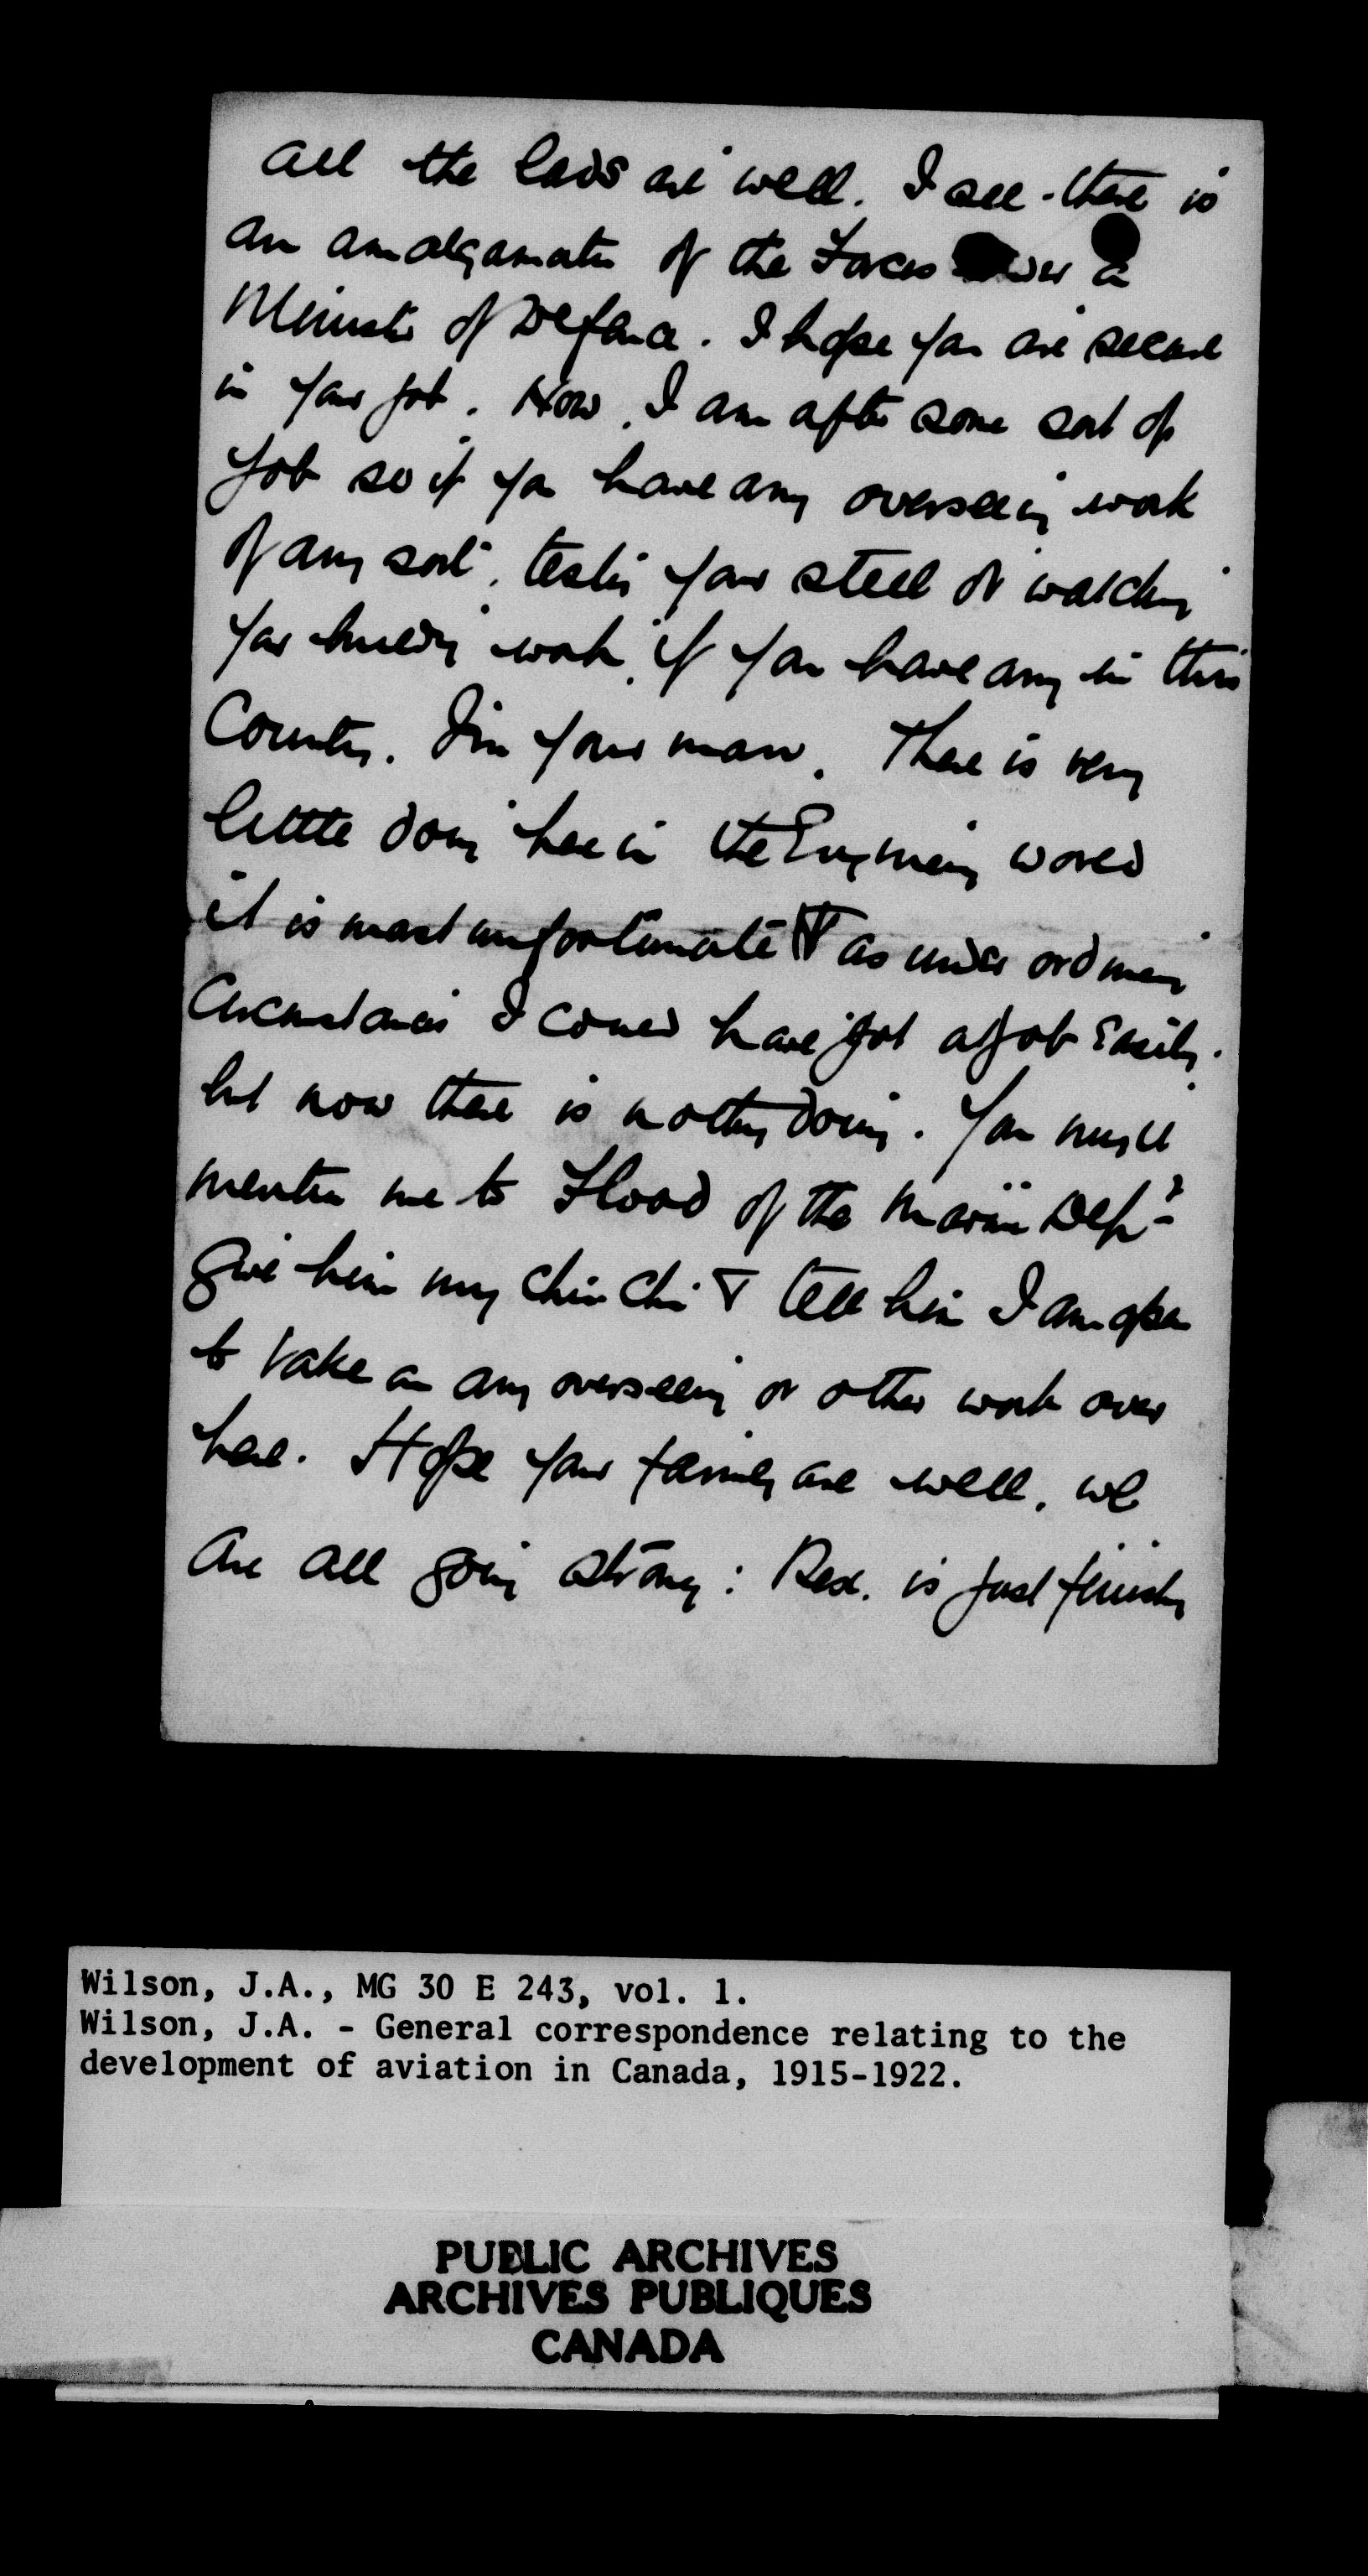 all the lads are well. I see there is
an amalgamation of the Forces under a
Minister of Defence. I hope you are secure
in your job. Now, I am after some sort of
job so if you have any overseeing work
of any sort, testing your steel or watching
your building work, if you have any in this
Country. I'm your man. There is very
little doing here in the Engineering world
it is most unfortunate as under ordinary
circumstances I could have got a job Easily.
but now there is nothing doing. You might
mention me to Flood of the Marine Dept
give him my Chin Chin & tell him I am open
to take on any overseeing or other work over
here. Hope your family are well, we
are all going strong: Rex. is just finishing
Wilson, J.A., MG 30 E 243, vol. 1.
Wilson, J.A. - General correspondence relating to the
development of aviation in Canada, 1915-1922.
PUBLIC ARCHIVES
ARCHIVES PUBLIQUES
CANADA